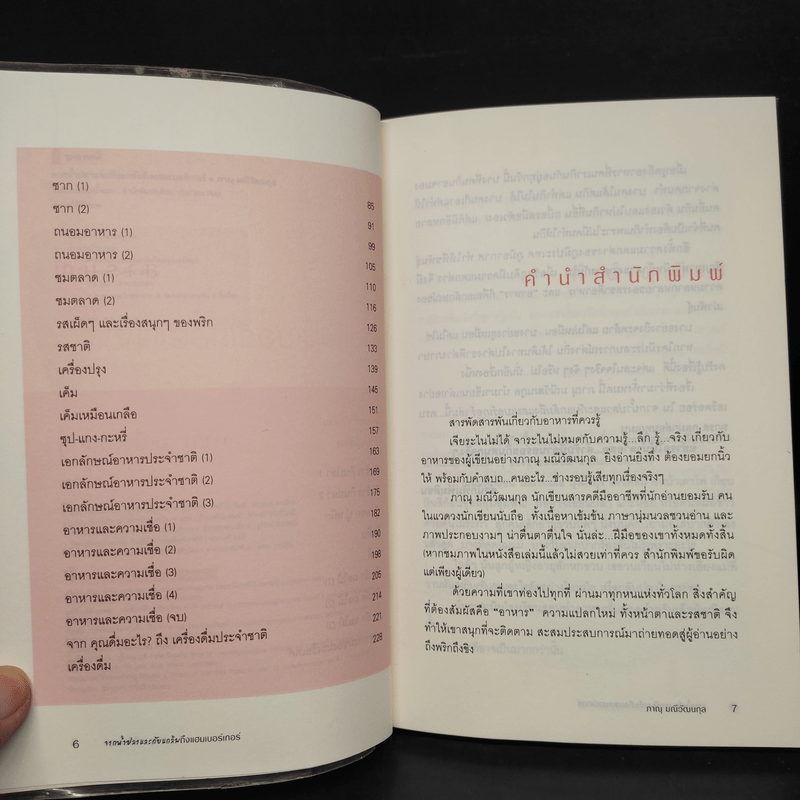 ซาก (1) 85
ซาก (2) 91
ถนอมอาหาร (1) 99
ถนอมอาหาร (2) 105
ชมตลาด (1) 110
ชมตลาด (2) 116
รสเผ็ดๆ และเรื่องสนุกๆ ของพริก 126
รสชาติ 133
เครื่องปรุง 139
เค็ม 145
เค็มเหมือนเกลือ 151
ซุป-แกง-กะหรี่ 157
เอกลักษณ์อาหารประจำชาติ (1) 163
เอกลักษณ์อาหารประจำชาติ (2) 169
เอกลักษณ์อาหารประจำชาติ (3) 175
อาหารและความเชื่อ (1) 182
อาหารและความเชื่อ (2) 190
อาหารและความเชื่อ (3) 198
อาหารและความเชื่อ (4) 205
อาหารและความเชื่อ (จบ) 214
จาก คุณดื่มอะไร? ถึง เครื่องดื่มประจำชาติ 221
เครื่องดื่ม 228
6 จากน้ำปลาและกับแกล้มถึงแฮมเบอร์เกอร์
คำนำสำนักพิมพ์
สารพัดสารพันเกี่ยวกับอาหารที่ควรรู้
เจียระไนไม่ได้ จาระไนไม่หมดกับความรู้...ลึก รู้...จริง เกี่ยวกับ
อาหารของผู้เขียนอย่างภาณุ มณีวัฒนกุล ยิ่งอ่านยิ่งทึ่ง ต้องยอมยกนิ้ว
ให้ พร้อมกับคำสบถ...คนอะไร...ช่างรอบรู้เสียทุกเรื่องจริงๆ
ภาณุ มณีวัฒนกุล นักเขียนสารคดีมืออาชีพที่นักอ่านยอมรับ คน
ในแวดวงนักเขียนนับถือ ทั้งเนื้อหาเข้มข้น ภาษานุ่มนวลชวนอ่าน และ
ภาพประกอบงามๆ น่าตื่นตาตื่นใจ นั่นล่ะ...ฝีมือของเขาทั้งหมดทั้งสิ้น
(หากชมภาพในหนังสือเล่มนี้แล้วไม่สวยเท่าที่ควร สำนักพิมพ์ขอรับผิด
แต่เพียงผู้เดียว)
ด้วยความที่เขาท่องไปทุกที่ ผ่านมาทุกหนแห่งทั่วโลก สิ่งสำคัญ
ที่ต้องสัมผัสคือ “อาหาร” ความแปลกใหม่ ทั้งหน้าตาและรสชาติ จึง
ทำให้เขาสนุกที่จะติดตาม สะสมประสบการณ์มาถ่ายทอดสู่ผู้อ่านอย่าง
ถึงพริกถึงขิง
ภาณุ มณีวัฒนกุล 7